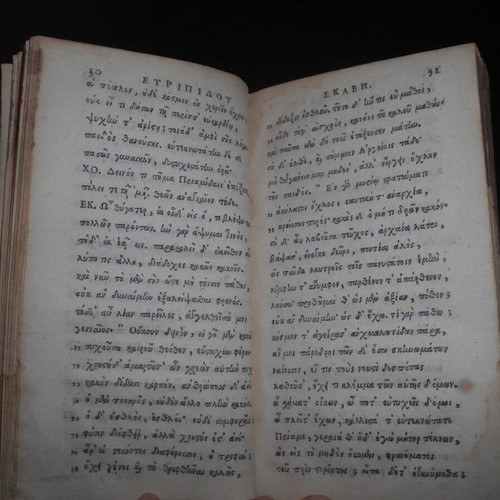 90 ΕΥΡΙΠΙΔΟΥ
οὐ πέπλον, οὐδὲ κόσμον ἐς χέρας ἔχων;
οὐκ εἶ τι δώσων τῇ περίσσ' εὐκαρδίῳ,
ψυχήν τ' ἀρίστῃ; τοιάδ' ἀμφὶ σῆς λέγω
παιδὸς θανούσης. εὐτεκνωτάτην δέ σε
πασῶν γυναικῶν, δυστυχεστάτην θ' ὁρῶ.
ΧΟ. Δεινόν τι πῆμα Πριαμίδαις ἐπέζεσε,
πόλει τε τῇ 'μῇ. θεῶν ἀναγκαῖον τόδε.
ΕΚ. Ὦ θύγατερ, οὐκ οἶδ' εἰς ὅ, τι βλέψω κακῶν,
πολλῶν παρόντων. ἢν γὰρ ἅψωμαι τινὸς,
τόδ' οὐκ ἐᾷ με. παρακαλεῖ δ' ἐκεῖθεν αὖ
λύπη τις ἄλλη, διάδοχος κακῶν κακοῖς.
καὶ νῦν τὸ μὲν σὸν ὥστε μὴ στένειν πάθος,
οὐκ ἂν δυναίμην ἐξαλείψασθαι φρενός.
τὸ δ' αὖ λίαν παρεῖλες, ἀγγελθεῖσά μοι
γενναῖος. " Οὔκουν δεινὸν, εἰ γῆ μὲν κακὴ
„ τυχοῦσα καιροῦ θεόθεν, εὖ στάχυν φέρει,
„ χρηστὴ δ' ἁμαρτοῦσ' ὧν χρεὼν αὐτὴν τυχεῖν
„ κακὸν δίδωσι καρπόν. ἀνθρώποις δ' ἀεὶ
„ ὁ μὲν πονηρὸς, οὐδὲν ἄλλο πλὴν κακός.
„ ὁ δ' ἐσθλὸς, ἐσθλός. οὐδὲ συμφορᾶς
„ φύσιν διέφθειρ', ἀλλὰ χρηστός ἐστ' ἀεί.
„ ἆρ' οἱ τεκόντες διαφέρουσιν, ἢ τροφαί;
„ ἔχει γέ τοί τι καὶ τὸ θρεφθῆναι καλῶς,
ΕΚΑΒΗ. 91
„ δίδαξιν ἐσθλοῦ. τοῦτο δ' ἤν τις εὖ μάθῃ,
„ οἶδε τό γ' αἰσχρὸν, κανόνι τοῦ καλοῦ μαθών.
καὶ ταῦτα μὲν δὴ νοῦς ἐτόξευσεν μάτην.
σὺ δ' ἐλθὲ, καὶ σήμηνον Ἀργείοις τάδε
μὴ θιγγάνειν μου μηδέν', ἀλλ' εἴργειν ὄχλον
τῆς παιδός. " Ἔν τοι μυρίῳ στρατεύματι
„ ἀκόλαστος ὄχλος, ναυτικὴ τ' ἀναρχία,
„ κρείσσων πυρός. κακὸς δ' ὁ μή τι δρῶν κακόν.
σὺ δ' αὖ λαβοῦσα τεῦχος, ἀρχαία λάτρι,
βάψασ', ἔνεγκε δεῦρο, ποντίας ἁλός,
ὡς παῖδα λουτροῖς τοῖς πανυστάτοις ἐμὴν,
νύμφην τ' ἄνυμφον, παρθένον τ' ἀπάρθενον,
λούσω, προθῶμαί θ' ὡς μὲν ἀξία, πόθεν;
οὐκ ἂν δυναίμην. ὡς δ' ἔχω. τί γὰρ πάθω;
κόσμον τ' ἀγείρασ' αἰχμαλωτίδων πάρα,
αἵ μοι πάρεδροι τῶν δ' ἔσω σκηνωμάτων
ναίουσιν, εἴ τις τοὺς νεωστὶ δεσπότας
λαθοῦσ', ἔχει τι κλέμμα τῶν αὑτῆς δόμων.
ὦ σχήματ' οἴκων, ὦ ποτ' εὐτυχεῖς δόμοι,
ὦ πλεῖστ' ἔχων, κάλλιστά τ' εὐτεκνώτατε
Πρίαμε, γεραιά θ' ἥδ' ἐγὼ μήτηρ τέκνων,
ὡς εἰς τὸ μηδὲν ἥκομεν, φρονήματος
τοῦ πρὶν στερέντες; εἶτα δῆτ' ὀγκούμεθα